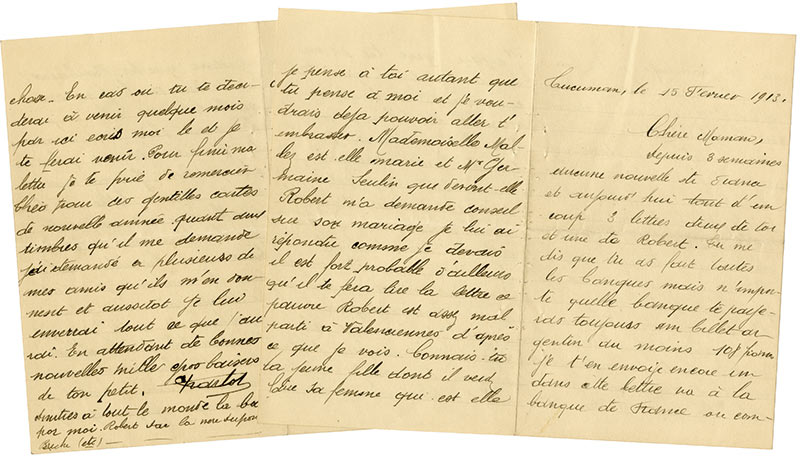 Tucuman, le 15 Fevrier 1913.
Chère Maman,
depuis 3 semaines
aucune nouvelle de France
et aujourd'hui tout d'un
coup 3 lettres deux de toi
et une de Robert. Tu me
dis que tu as fait toutes
les banques mais n'impor-
te quelle banque te paye-
ras toujours un billet ar-
gentin du moins
je t'en envoie encore un
dans cette lettre va à la
banque de France ou com-
je pense à toi autant que
tu pense à moi et je vou-
drais deja pouvoir aller t'
embrasser. Mademoiselle Mal-
les est elle marie et Mle Ger-
maine Seulin que devient-elle
Robert m'a demandé conseil
sur son mariage je lui ai
répondu comme je devais
il est fort probable d'ailleurs
qu'il te fera lire la lettre ce
pauvre Robert est assez mal
parti à Valenciennes d'après
ce que je vois. Connais-tu
la jeune fille dont il veut
faire sa femme qui est elle
chose. En cas ou tu te deci-
derai à venir quelque mois
par ici ecris moi le et je
te ferai venir. Pour finir ma
lettre je te prie de remercier
Théo pour ces gentilles cartes
de nouvelle année quant aux
timbres qu'il me demande
j'ai demandé a plusieurs de
mes amis qu'ils m'en don-
nent et aussitot je leur
enverrai tout ce que j'au
rai. En attendant de bonnes
nouvelles mille gros baisers
de ton petit.
amitiés à tout le monde la bas
par moi. Robert
(etc) —